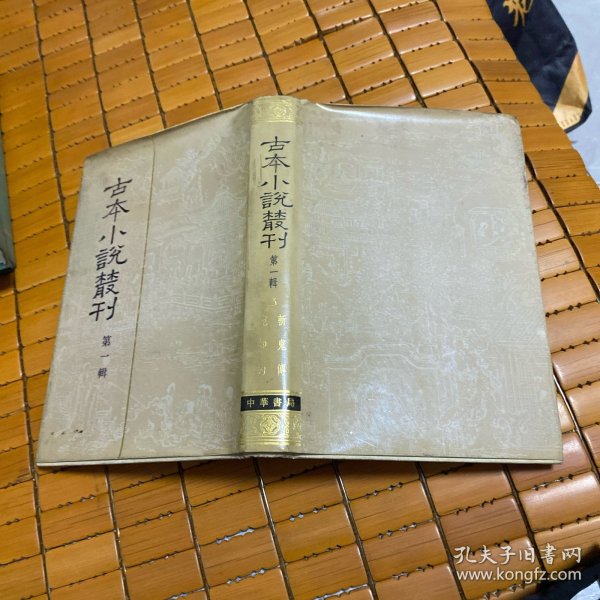 古本小說叢刊
第一輯
古本小說叢刊
第一輯
5
斬鬼傳
中華書局
孔夫子旧書网
www.kongfz.com